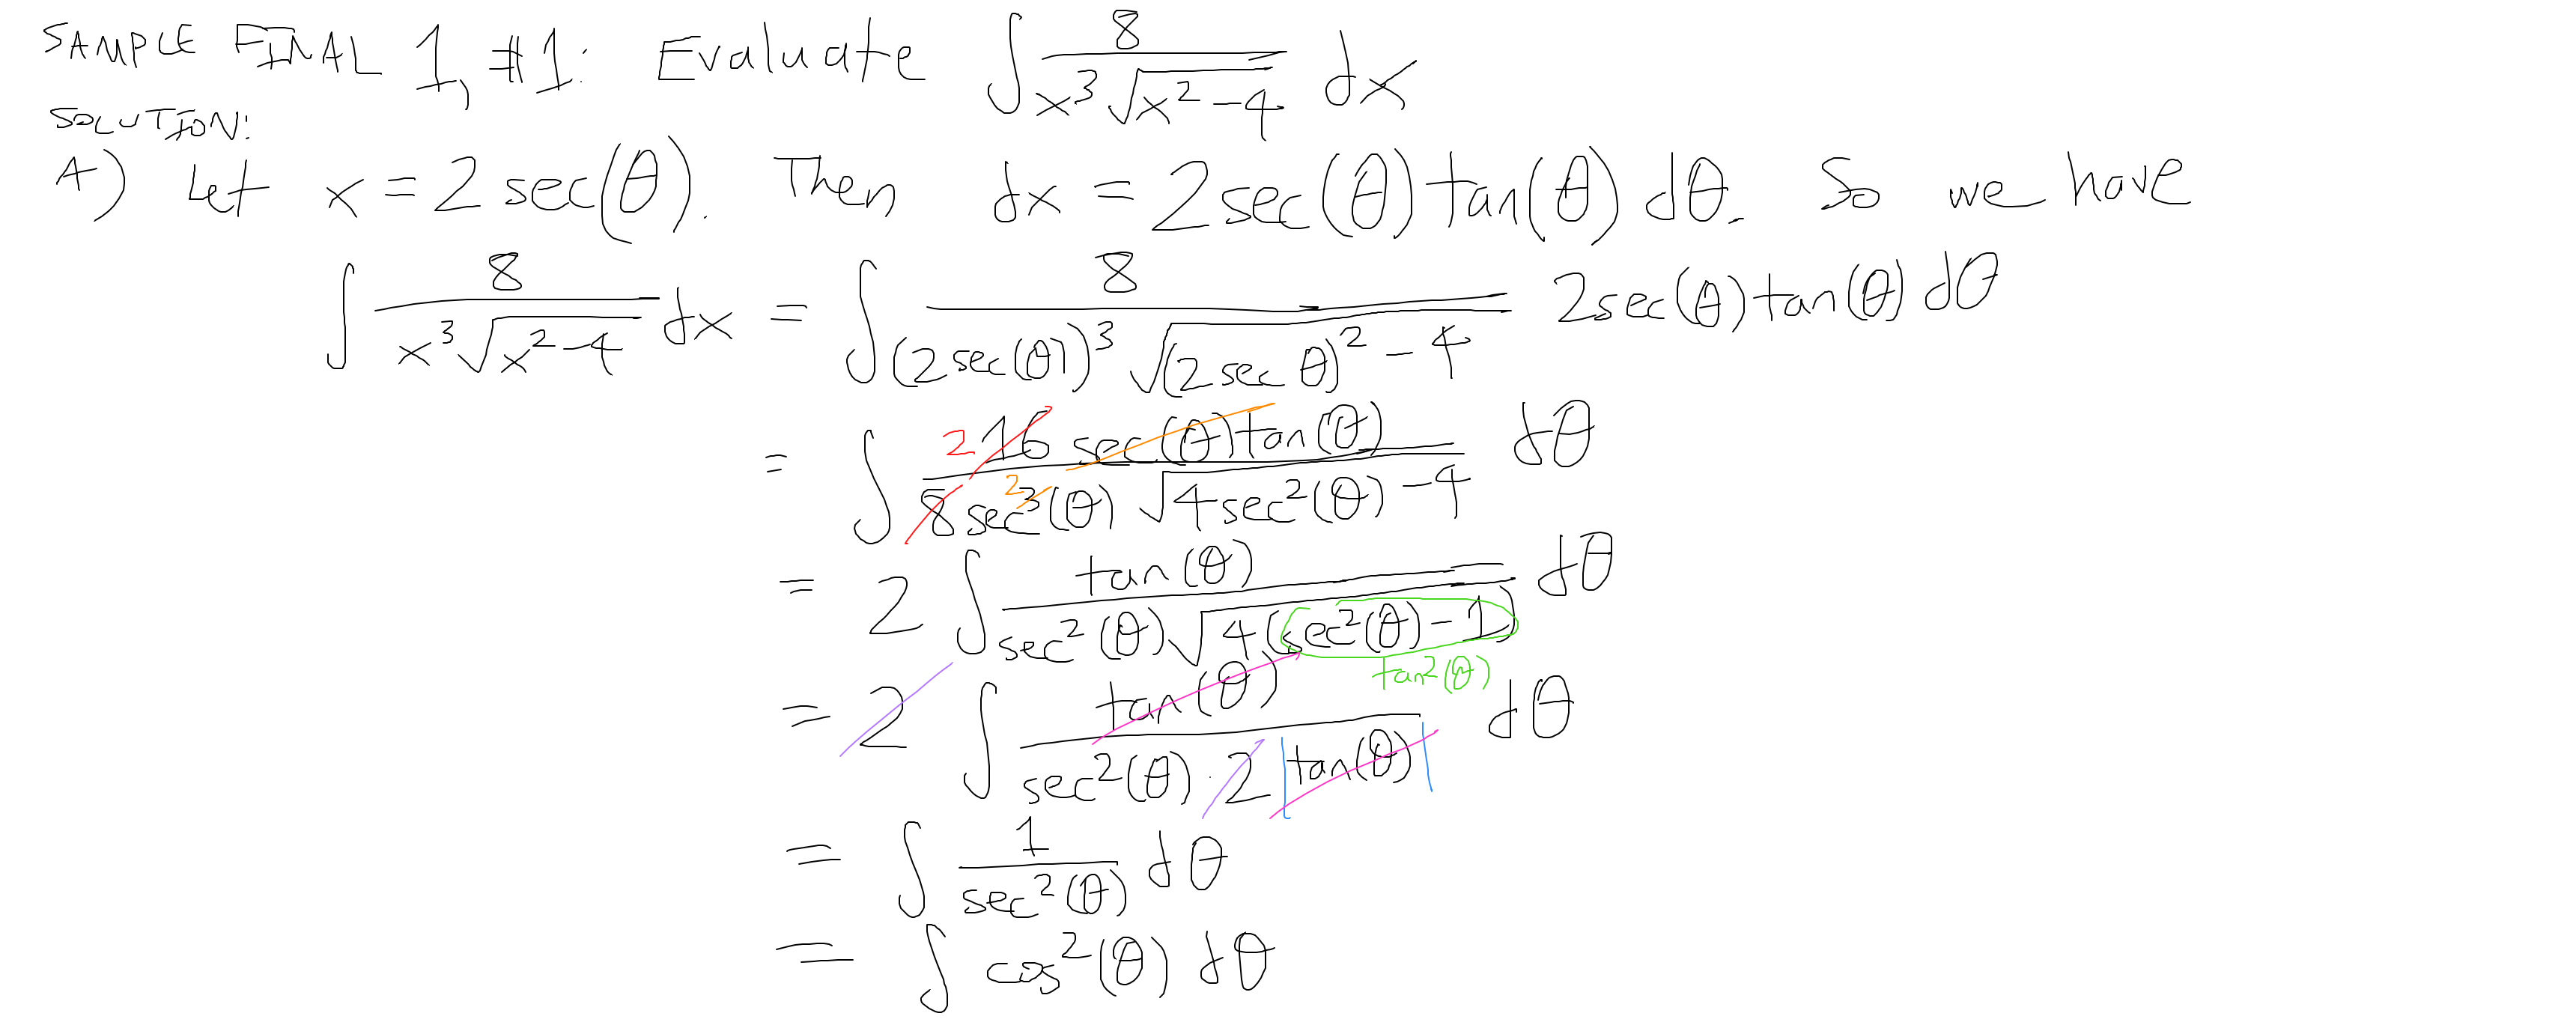 SAMPLE FINAL 1, #1: Evaluate ∫ 8/(x³√(x²-4)) dx
SOLUTION:
A) Let x = 2 sec(θ). Then dx = 2sec(θ)tan(θ)dθ. So we have
∫ 8/(x³√(x²-4)) dx = ∫ 8/((2sec(θ))³√((2sec θ)²-4)) 2sec(θ)tan(θ)dθ
= ∫ 2 16 sec(θ)tan(θ)/(8sec³ ²(θ)√(4sec²(θ)-4)) dθ
= 2 ∫ tan(θ)/(sec²(θ)√(4(sec²(θ)-1))) dθ
tan²(θ)
= 2 ∫ tan(θ)/(sec²(θ)·2|tan(θ)|) dθ
= ∫ 1/sec²(θ) dθ
= ∫ cos²(θ) dθ